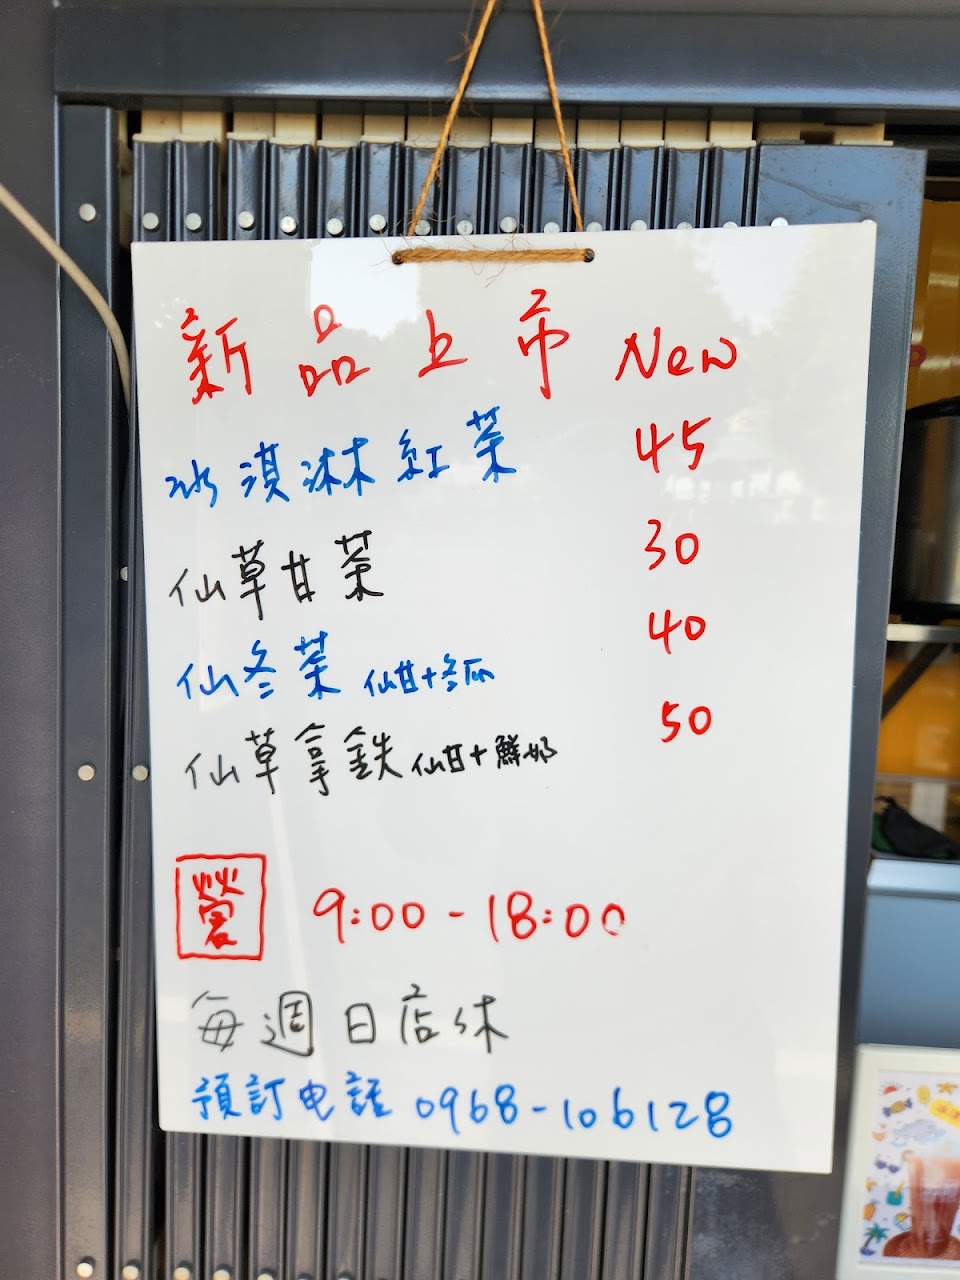 新品上市 New
冰淇淋紅茶 45
仙草甘茶 30
仙冬茶 仙甘+冬瓜 40
仙草拿鉄 仙甘+鮮奶 50
營 9:00-18:00
每週日店休
預訂电話 0968-106128